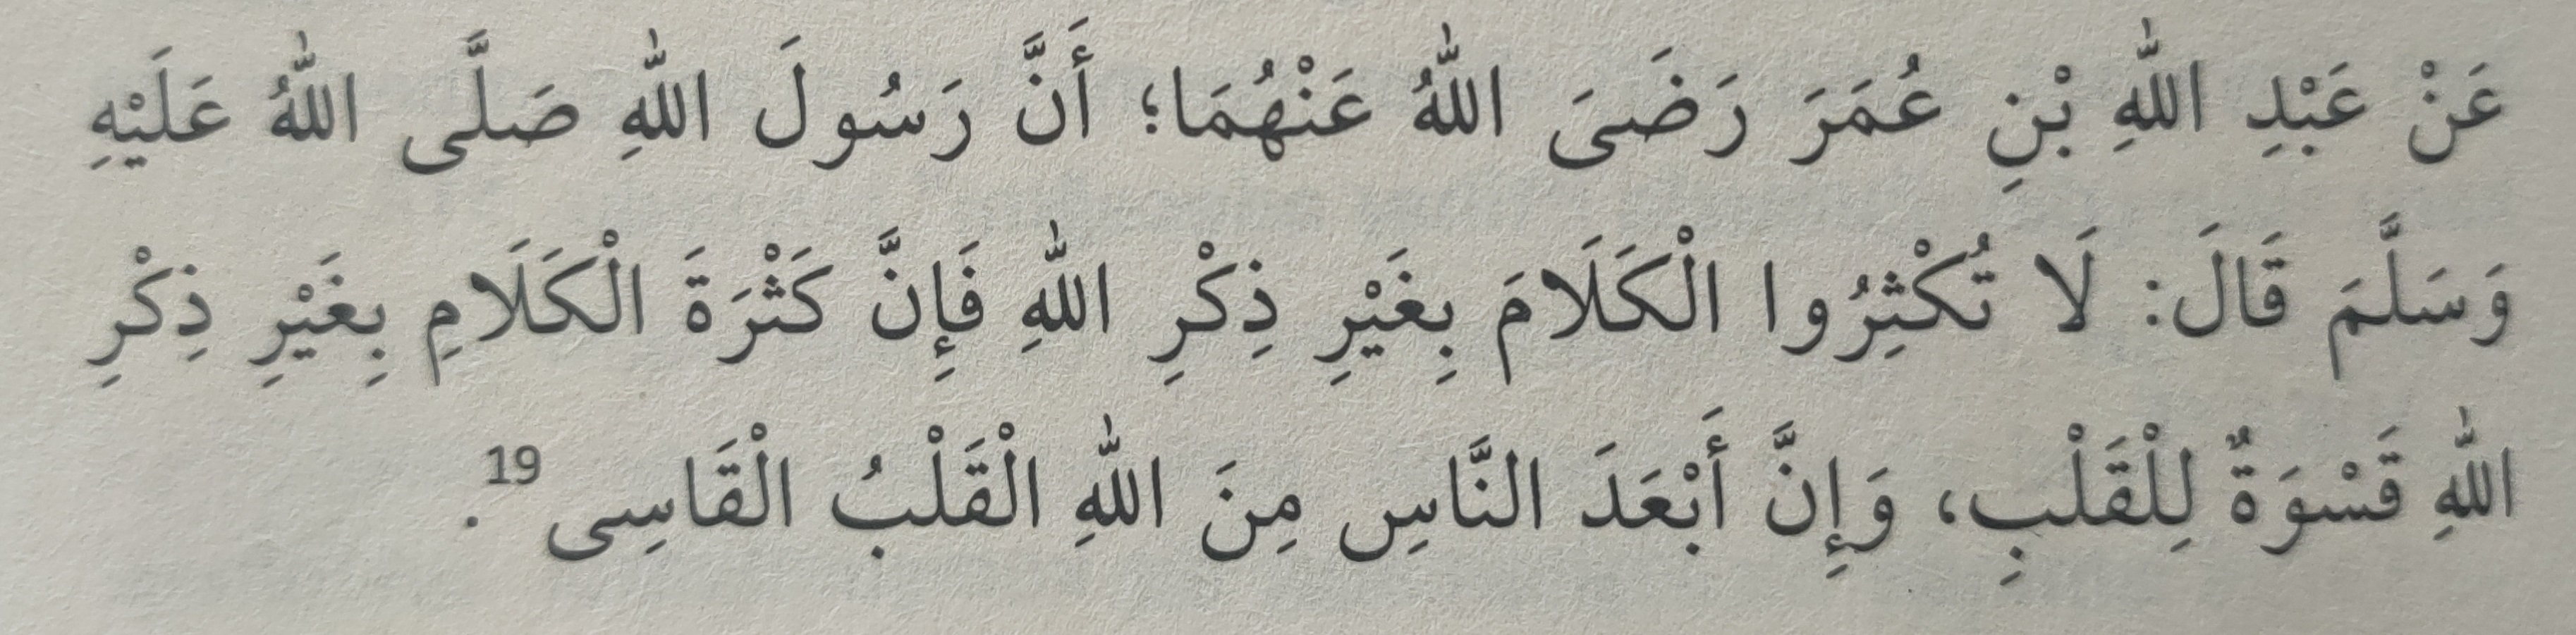 عَنْ عَبْدِ اللّٰهِ بْنِ عُمَرَ رَضَىَ اللّٰهُ عَنْهُمَا؛ أَنَّ رَسُولَ اللّٰهِ صَلَّى اللّٰهُ عَلَيْهِ
وَسَلَّمَ قَالَ: لَا تُكْثِرُوا الْكَلَامَ بِغَيْرِ ذِكْرِ اللّٰهِ فَإِنَّ كَثْرَةَ الْكَلَامِ بِغَيْرِ ذِكْرِ
اللّٰهِ قَسْوَةٌ لِلْقَلْبِ، وَإِنَّ أَبْعَدَ النَّاسِ مِنَ اللّٰهِ الْقَلْبُ الْقَاسِى19.